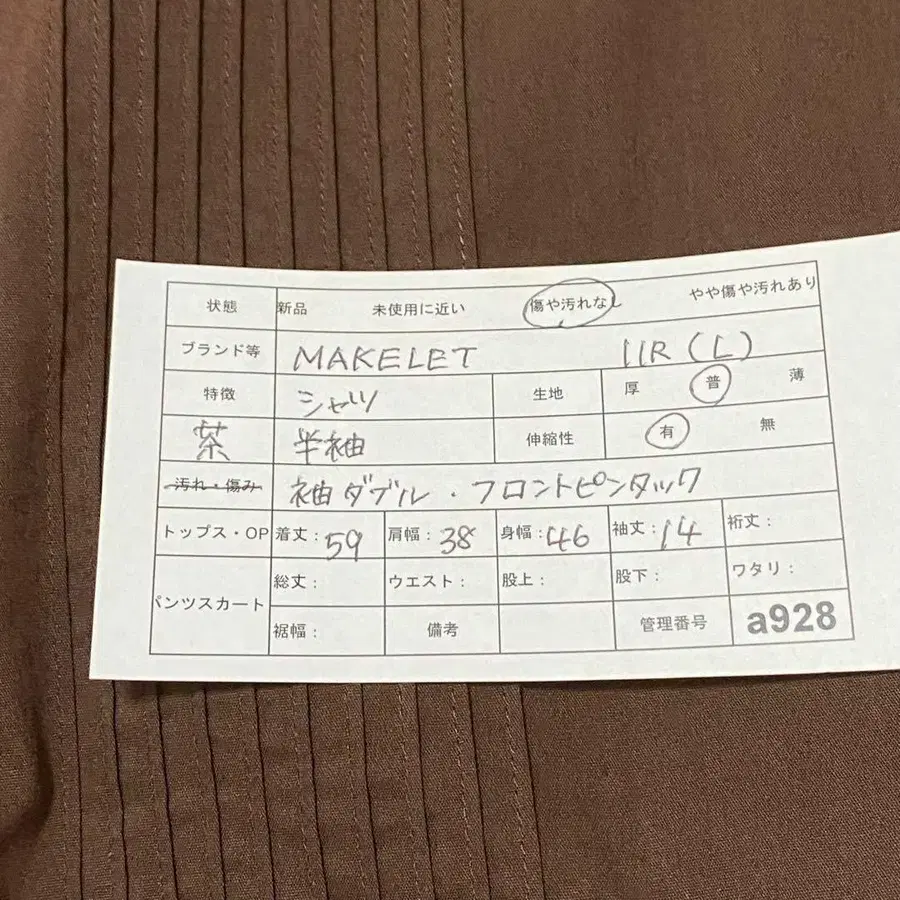 状態 新品 未使用に近い 傷や汚れなし やや傷や汚れあり
ブランド等 MAKELET 11R (L)
特徴 シャツ 生地 厚 普 薄
茶 半袖 伸縮性 有 無
汚れ・傷み 袖ダブル・フロントピンタック
トップス・OP 着丈：59 肩幅：38 身幅：46 袖丈：14 裄丈：
パンツスカート 総丈： ウエスト： 股上： 股下： ワタリ：
裾幅： 備考 管理番号 a928